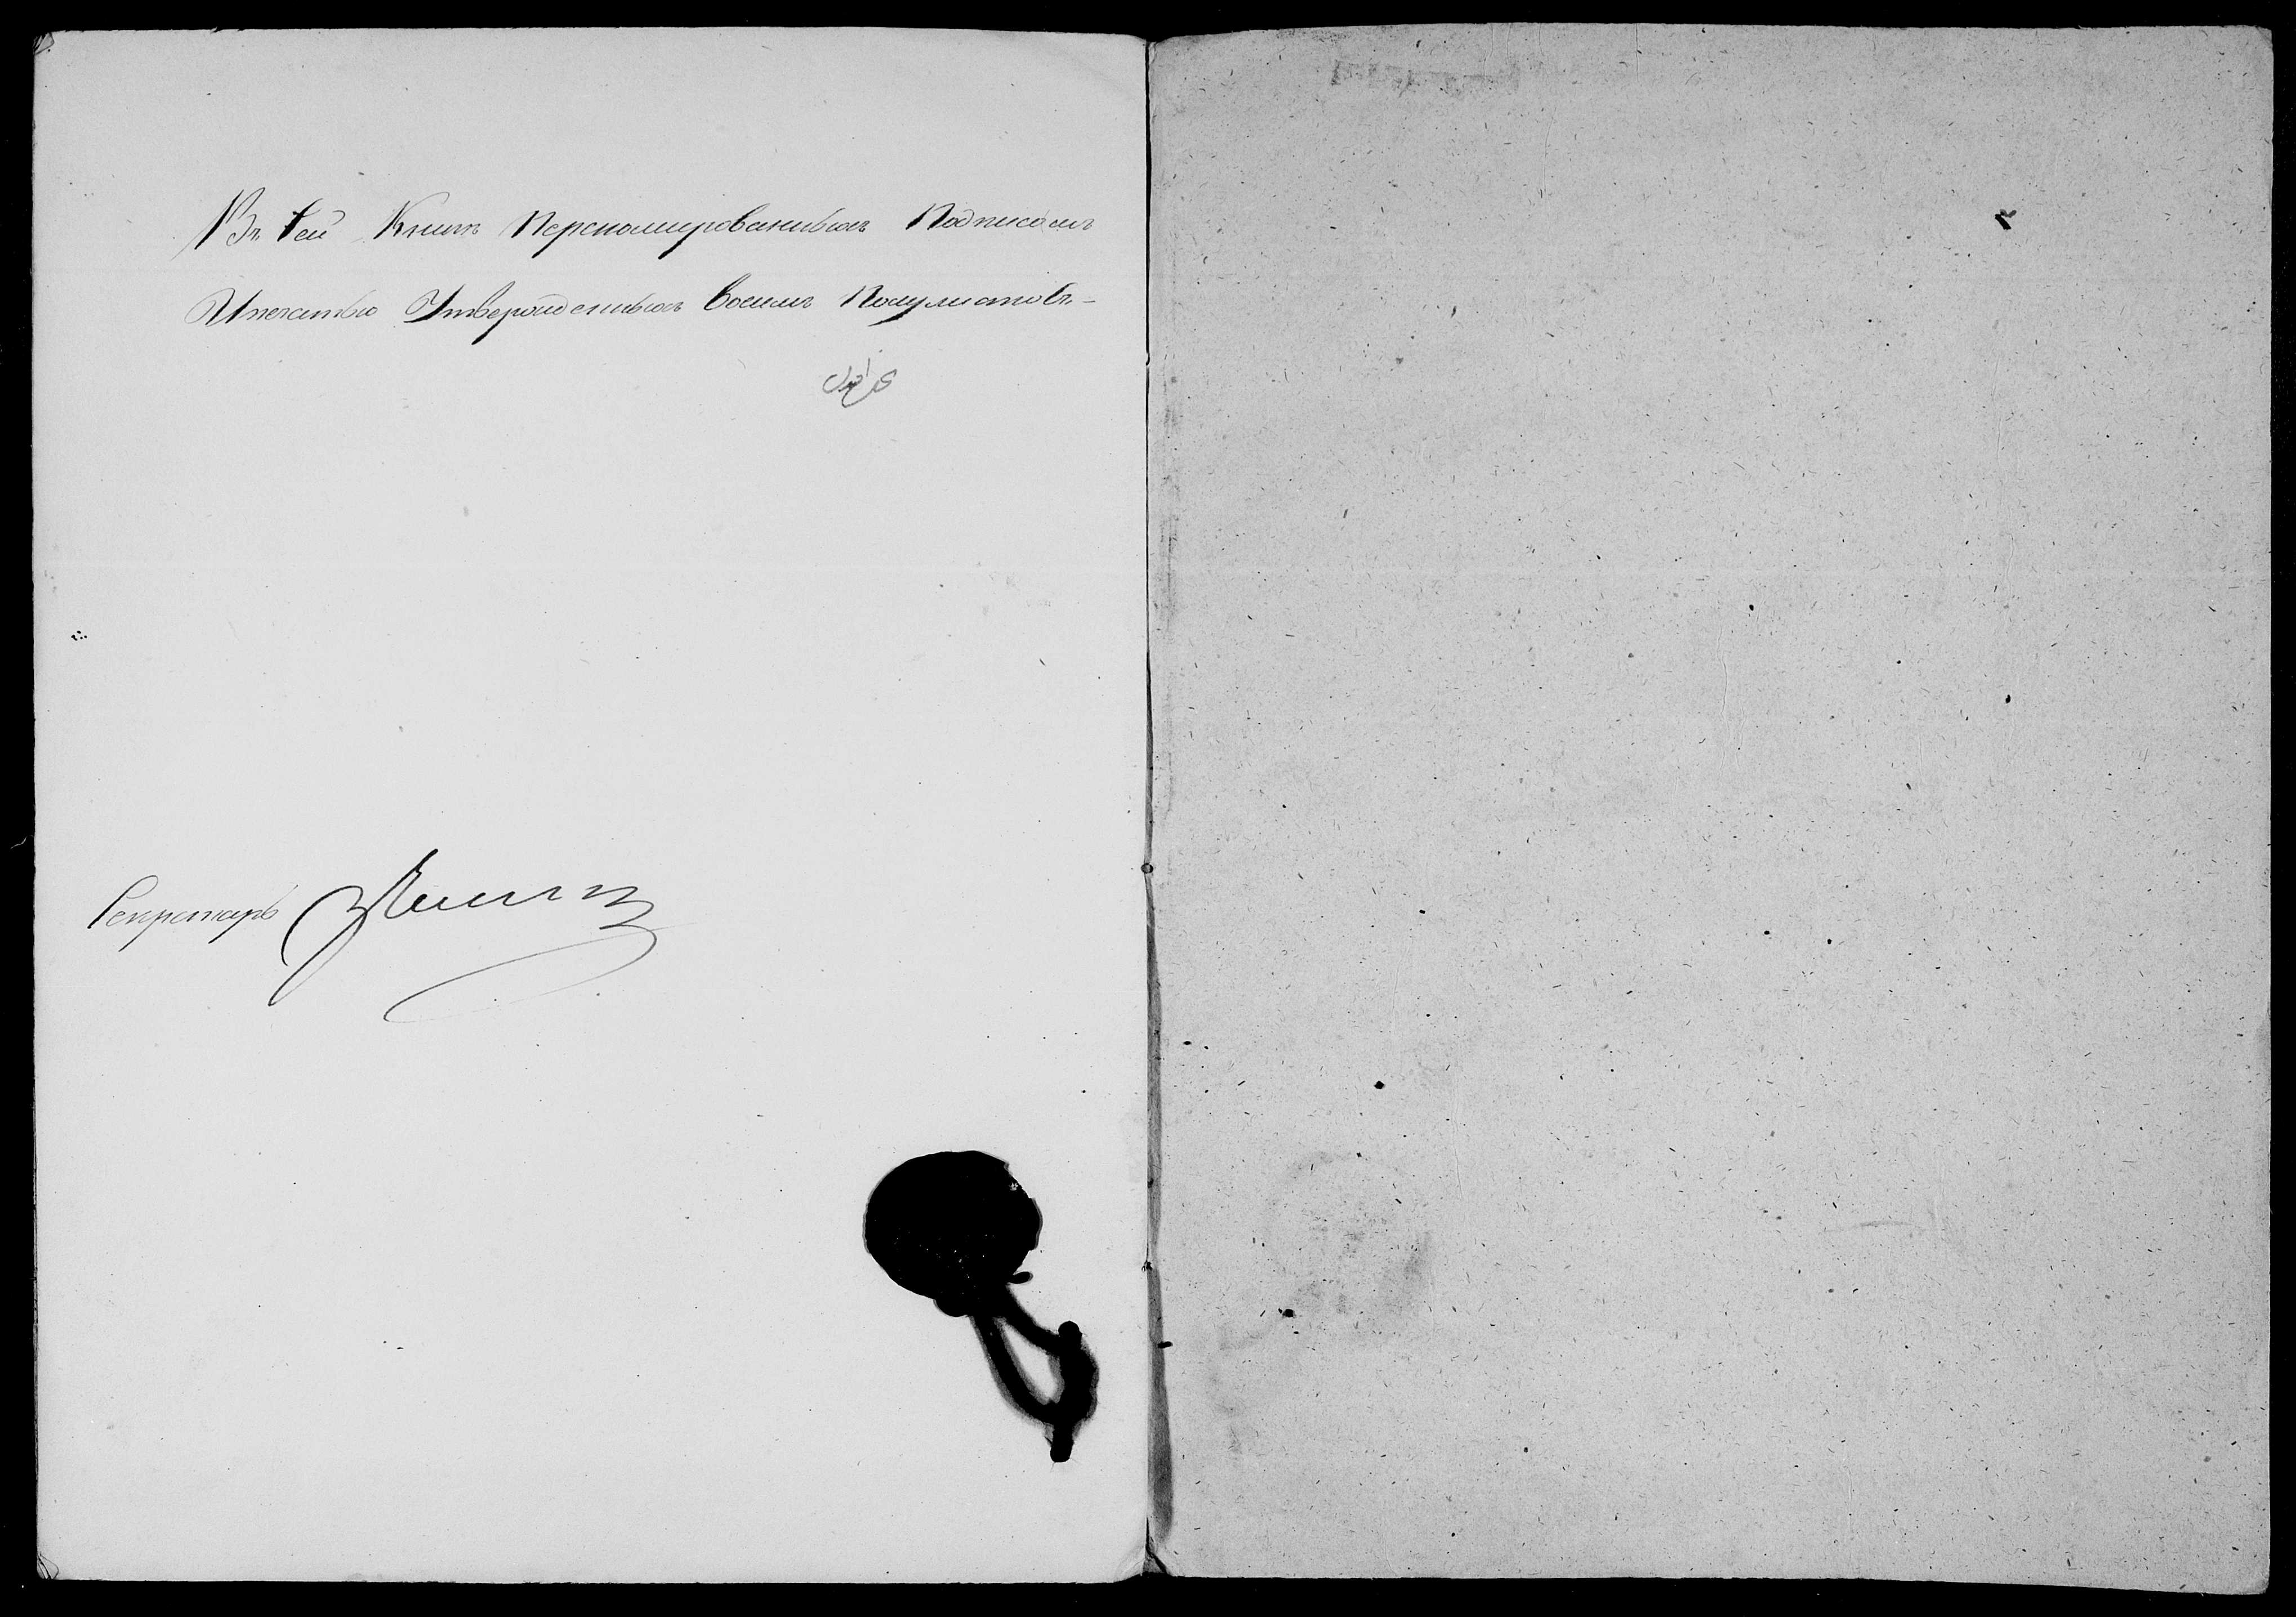 Въ сей Книгѣ Переномированныхъ Подписомъ
Ипечатью Утвержденныхъ восемь Полулистовъ.-
Секретарь